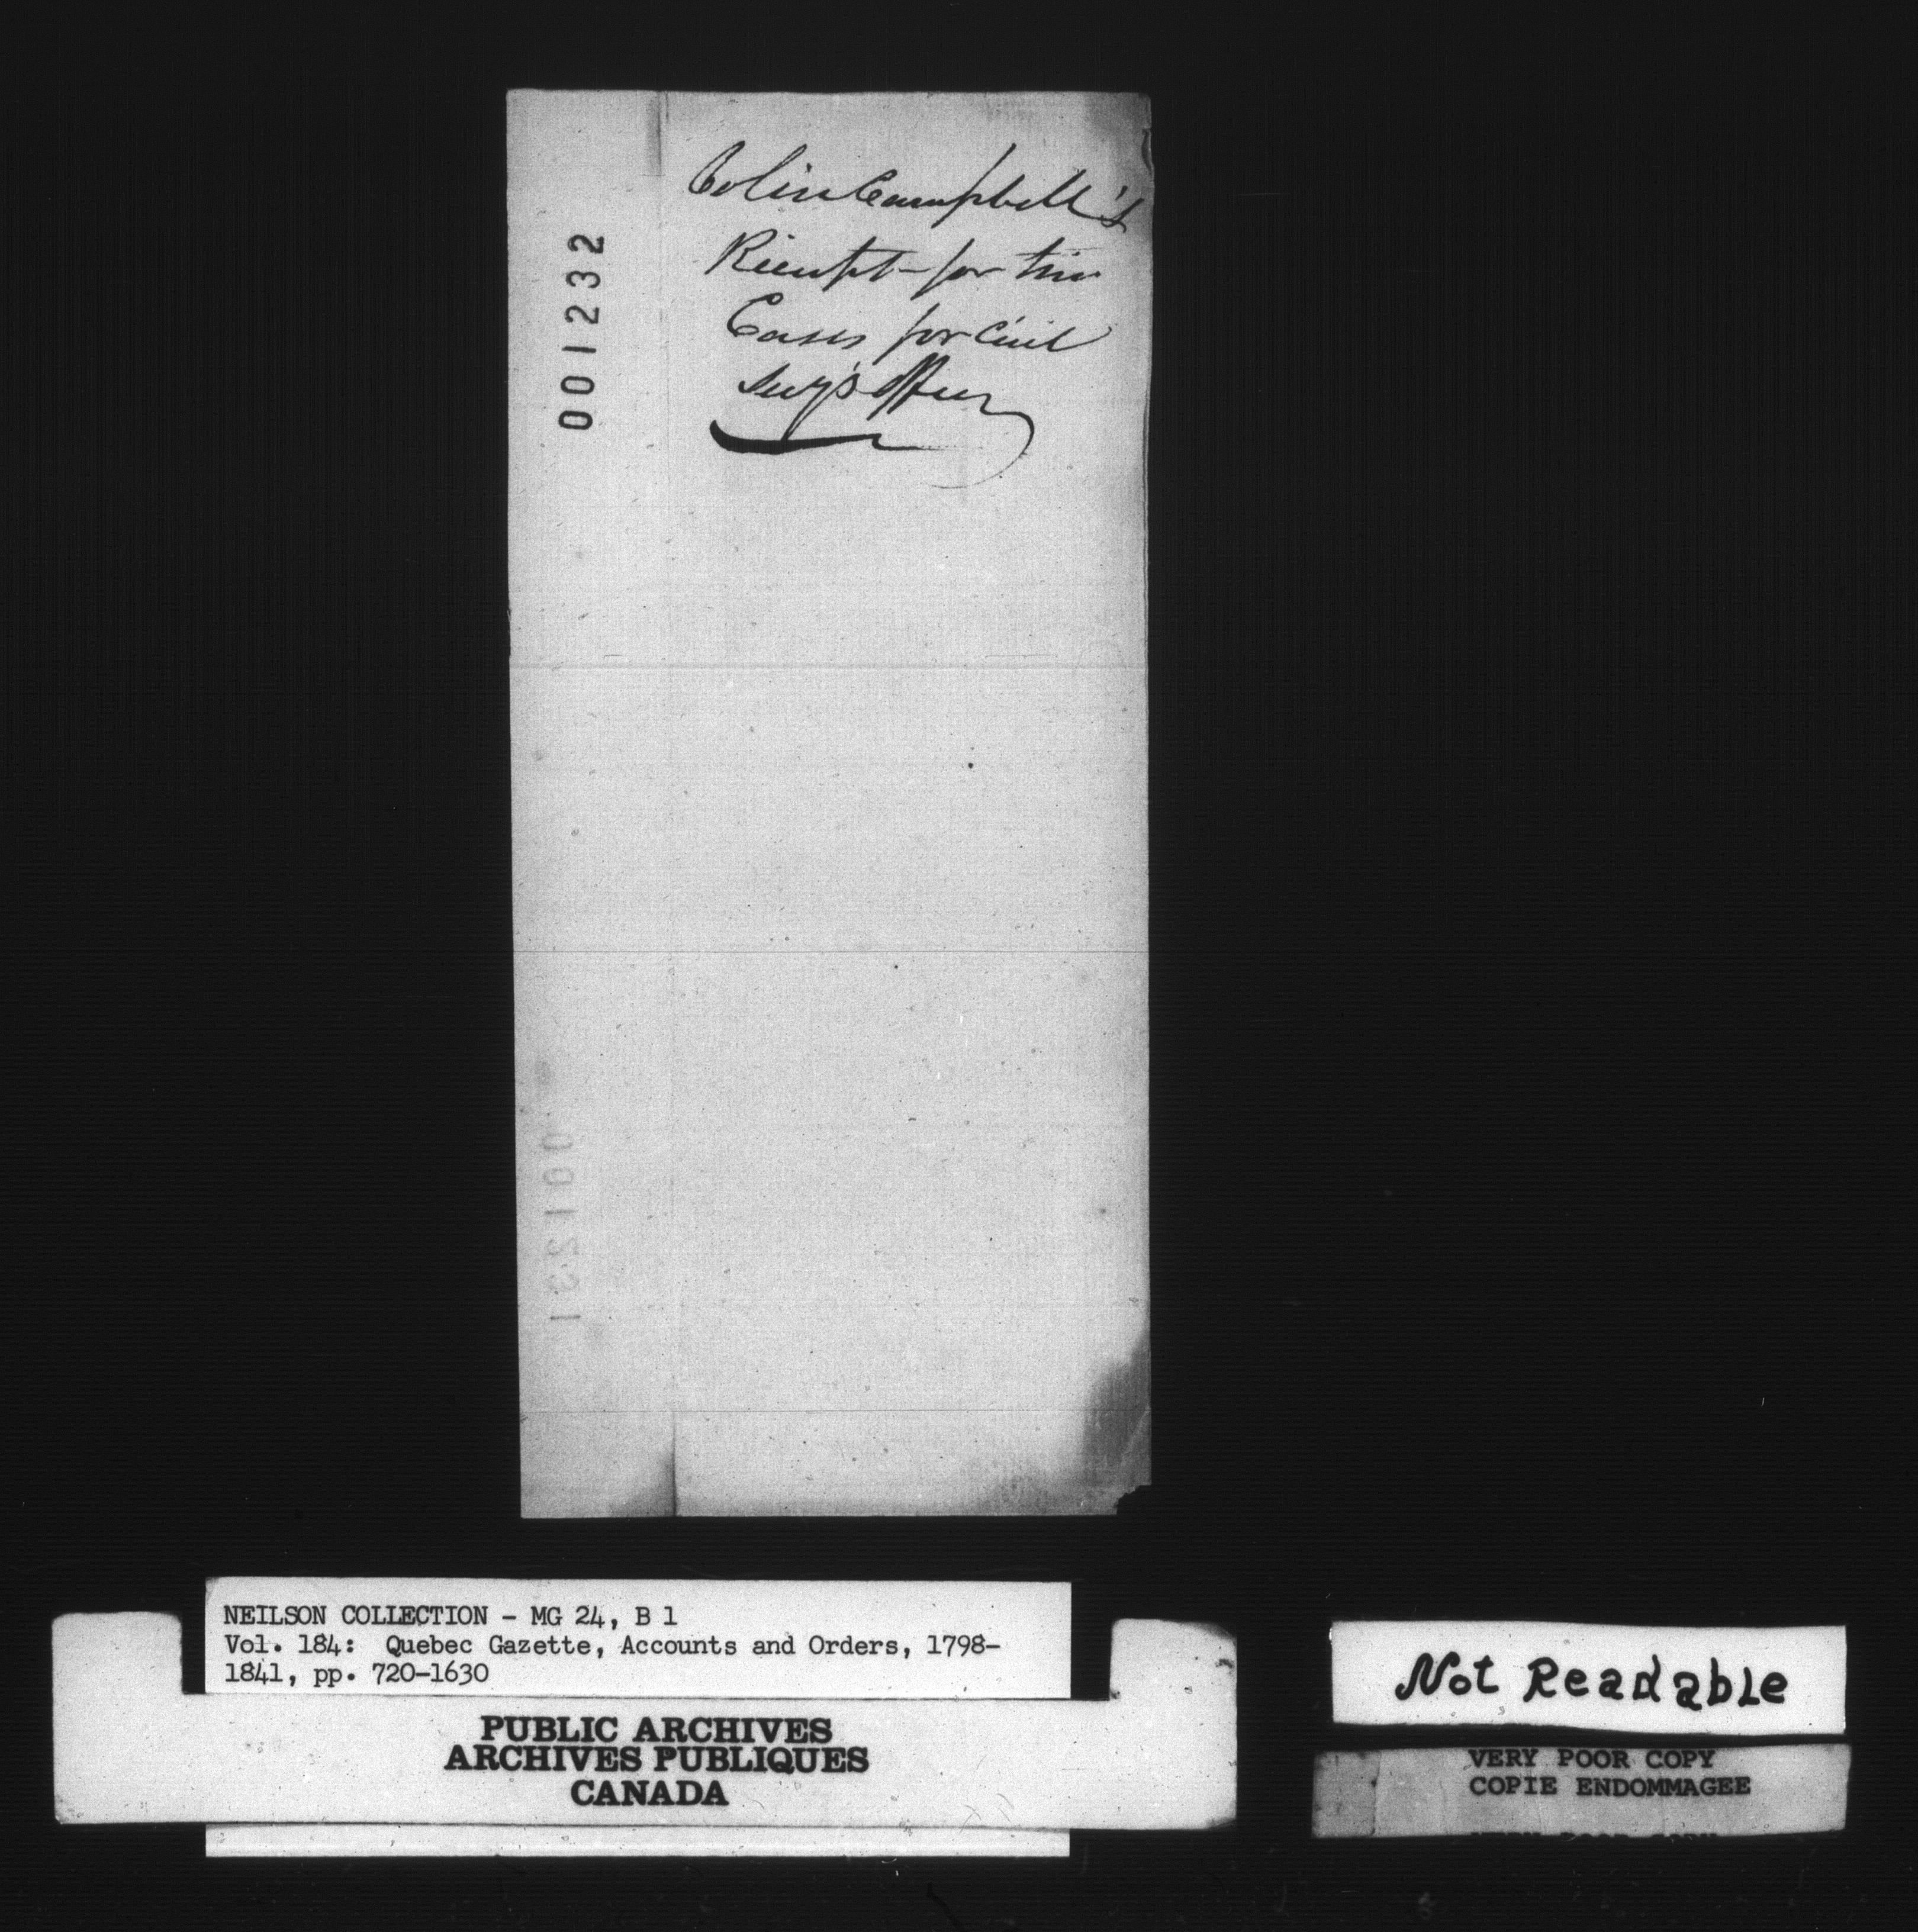 Colin Campbell's
Receipt for two
Cases for Civil
Secy's Office
001232
001231
NEILSON COLLECTION - MG 24, B 1
Vol. 184: Quebec Gazette, Accounts and Orders, 1798-
1841, pp. 720-1630
PUBLIC ARCHIVES
ARCHIVES PUBLIQUES
CANADA
Not Readable
VERY POOR COPY
COPIE ENDOMMAGEE